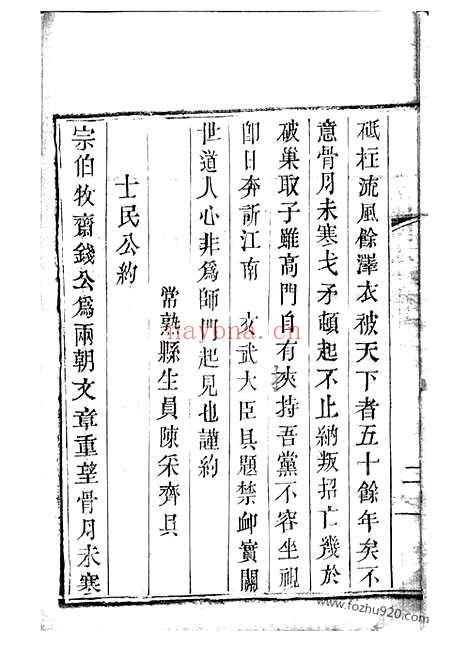 砥柱流風餘澤衣被天下者五十餘年矣不
意骨月未寒戈矛頓起不止納叛招亡幾於
破巢取子雖高門自有夾持吾黨不容坐視
卽日奔訴江南 文武大臣具題禁卹實關
世道人心非爲師門起見也謹約
常熟縣生員陳采齊具
士民公約
宗伯牧齋錢公爲兩朝文章重望骨月未寒
nayona.cn
www.fozhu920.com